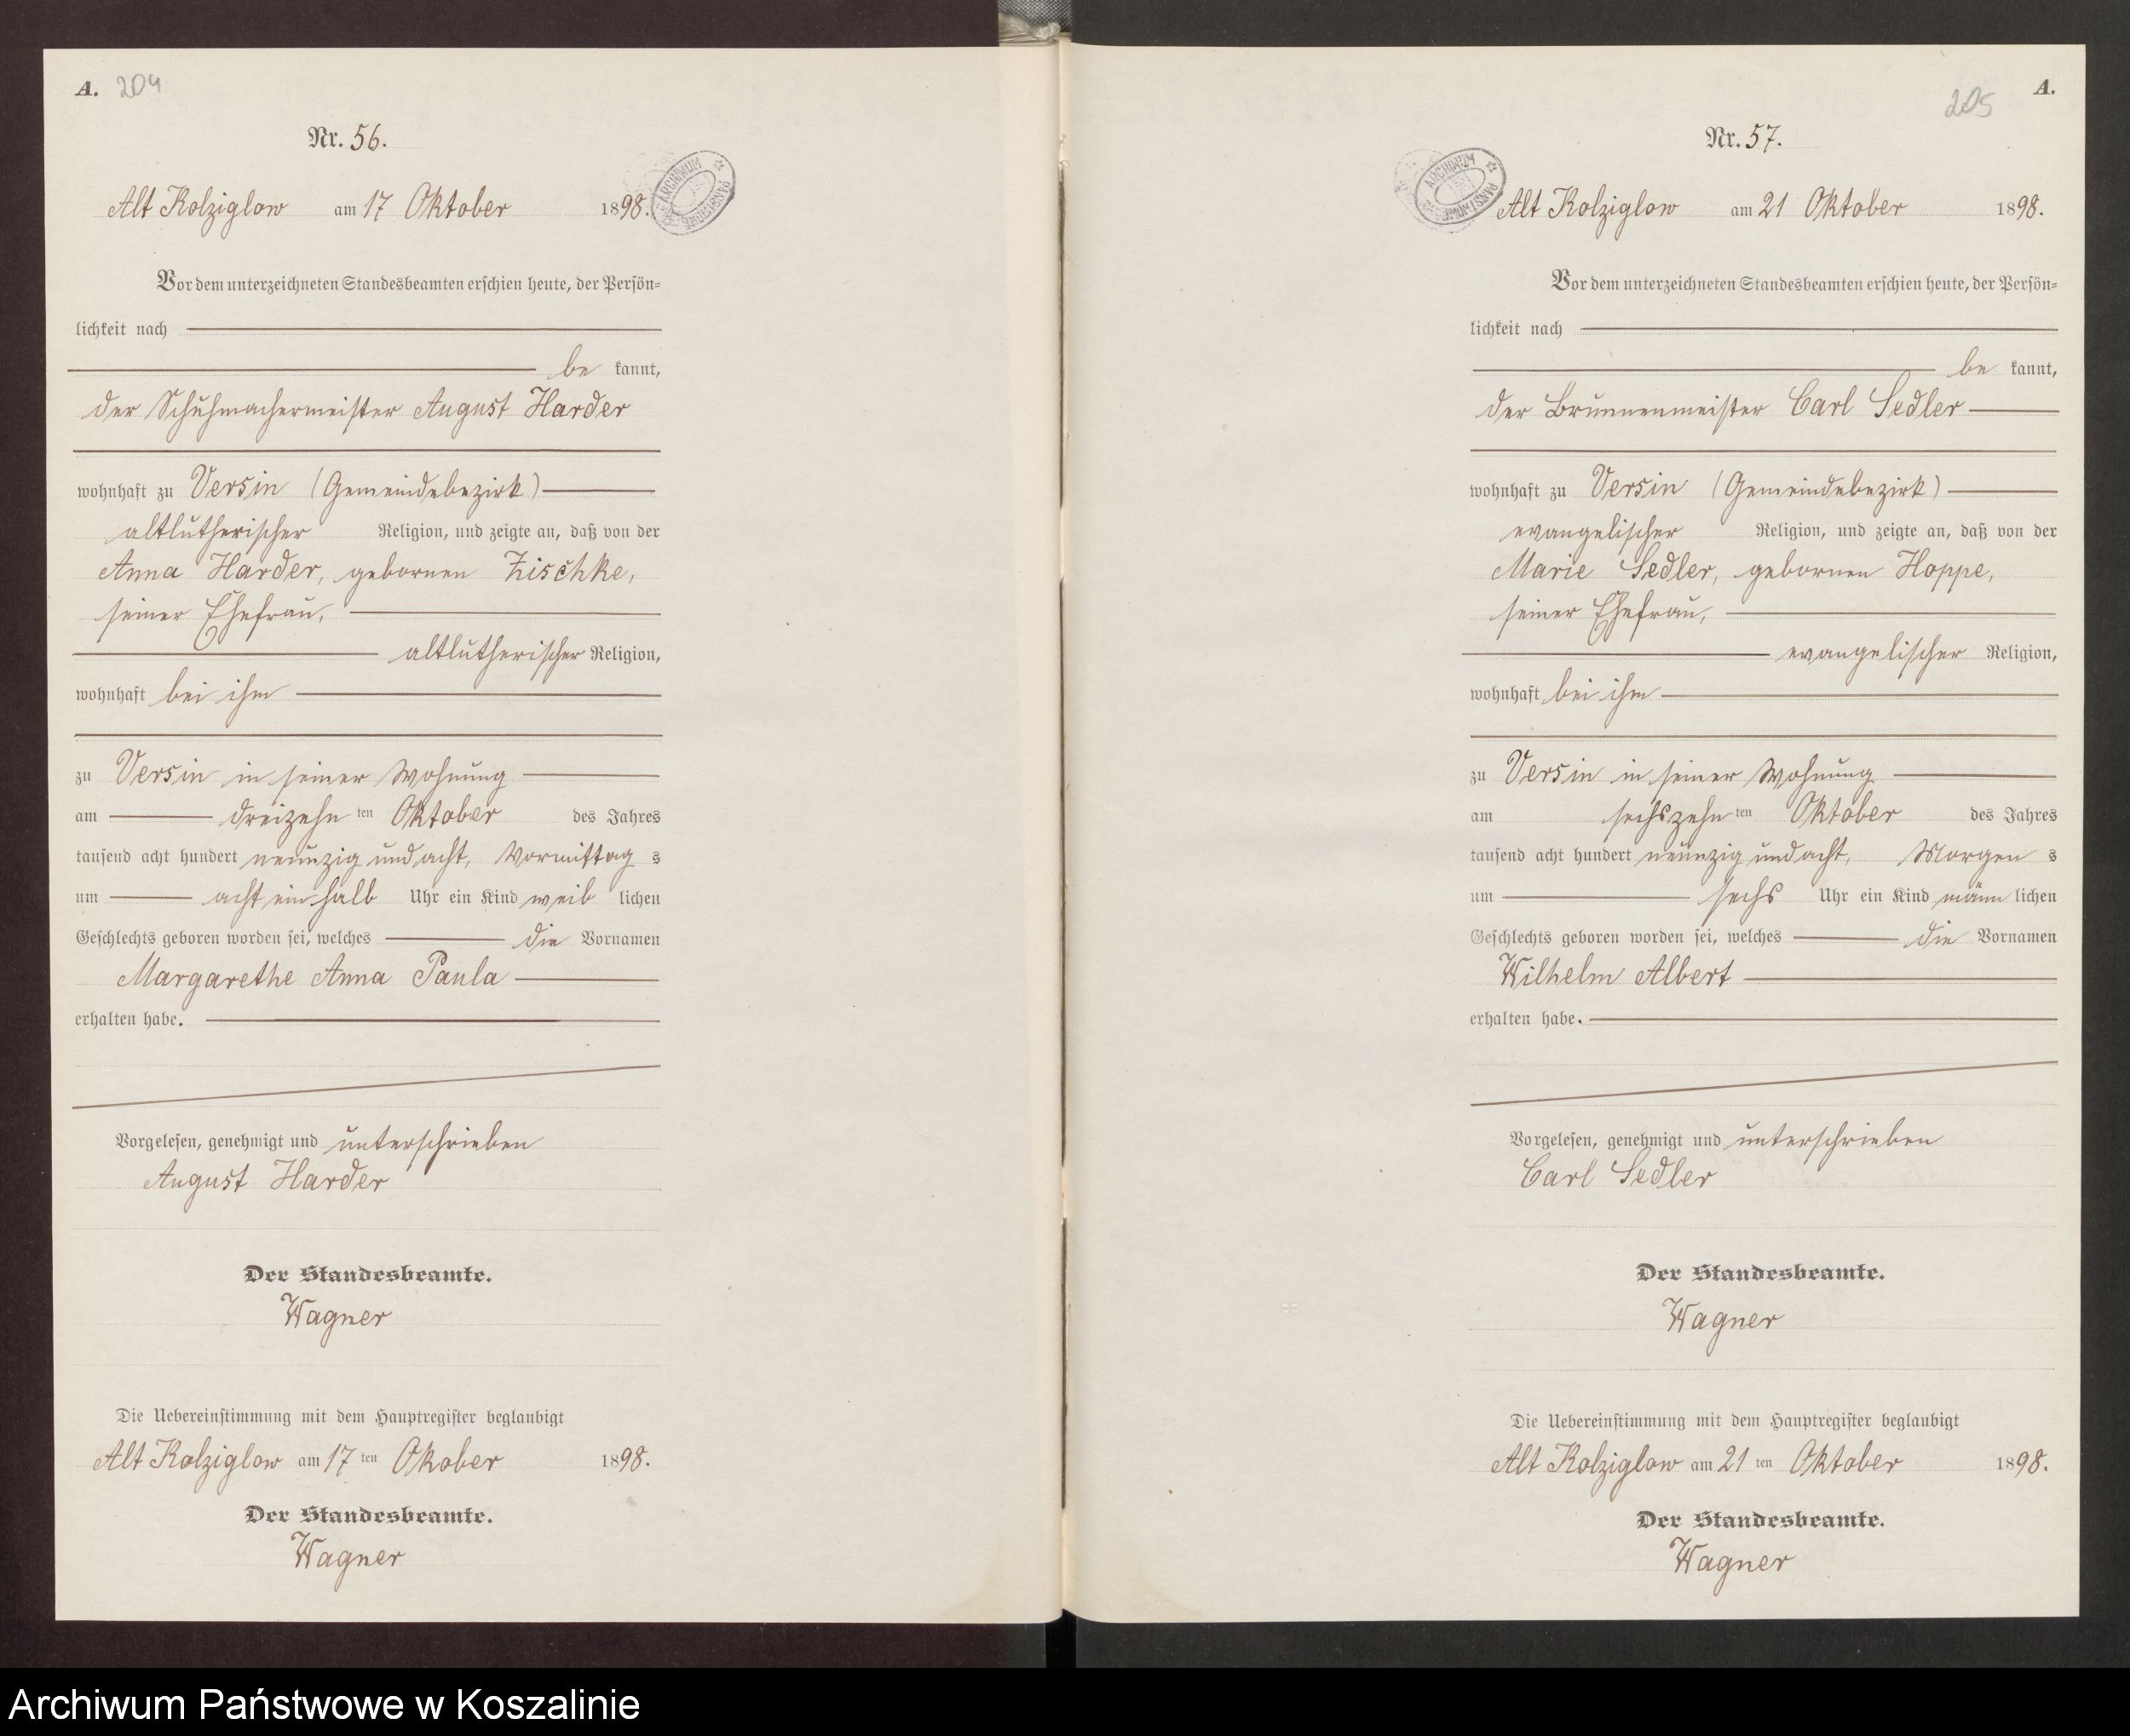 A. 204
Nr. 56.
Alt Kolziglow am 17 Oktober 1898.
Vor dem unterzeichneten Standesbeamten erschien heute, der Persön=
lichkeit nach
be kannt,
der Schuhmachermeister August Harder
wohnhaft zu Versin (Gemeindebezirk)
altlutherischer Religion, und zeigte an, daß von der
Anna Harder, gebornen Zischke,
seiner Ehefrau,
altlutherischer Religion,
wohnhaft bei ihm
zu Versin in seiner Wohnung
am dreizehn ten Oktober des Jahres
tausend acht hundert neunzig und acht, Vormittag s
um acht ein halb Uhr ein Kind weib lichen
Geschlechts geboren worden sei, welches die Vornamen
Margarethe Anna Paula
erhalten habe.
Vorgelesen, genehmigt und unterschrieben
August Harder
Der Standesbeamte.
Wagner
Die Uebereinstimmung mit dem Hauptregister beglaubigt
Alt Kolziglow am 17 ten Okober 1898.
Der Standesbeamte.
Wagner
205 A.
Nr. 57.
ARCHIWUM PAŃSTWOWE
Alt Kolziglow am 21 Oktober 1898.
Vor dem unterzeichneten Standesbeamten erschien heute, der Persön=
lichkeit nach
be kannt,
der Brunnenmeister Carl Sedler
wohnhaft zu Versin (Gemeindebezirk)
evangelischer Religion, und zeigte an, daß von der
Marie Sedler, gebornen Hoppe,
seiner Ehefrau,
evangelischer Religion,
wohnhaft bei ihm
zu Versin in seiner Wohnung
am sechszehn ten Oktober des Jahres
tausend acht hundert neunzig und acht, Morgen s
um sechs Uhr ein Kind männ lichen
Geschlechts geboren worden sei, welches die Vornamen
Wilhelm Albert
erhalten habe.
Vorgelesen, genehmigt und unterschrieben
Carl Sedler
Der Standesbeamte.
Wagner
Die Uebereinstimmung mit dem Hauptregister beglaubigt
Alt Kolziglow am 21 ten Oktober 1898.
Der Standesbeamte.
Wagner
Archiwum Państwowe w Koszalinie